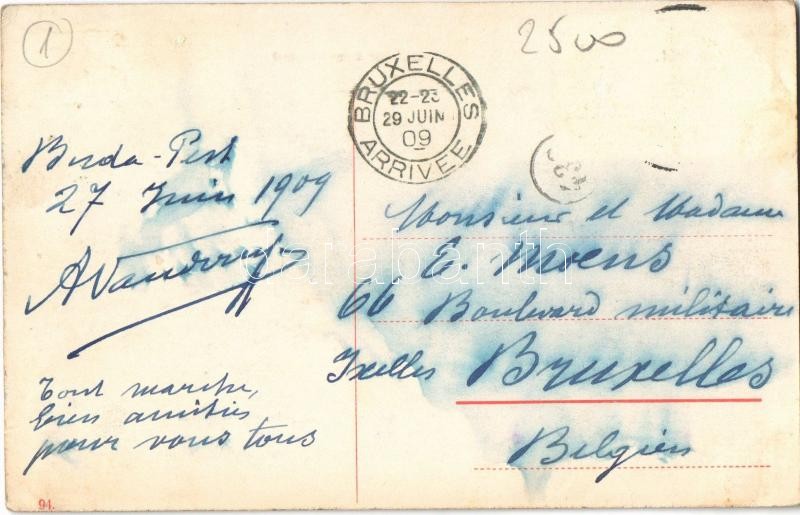 1
2500
BRUXELLES
22-23
29 JUIN
09
ARRIVÉE
Buda-Pest
27 Juin 1909
Monsieur et Madame
E. Moens
66 Boulevard militaire
Ixelles Bruxelles
Belgien
Tout marche,
bien amitiés
pour vous tous
94.
darabanth